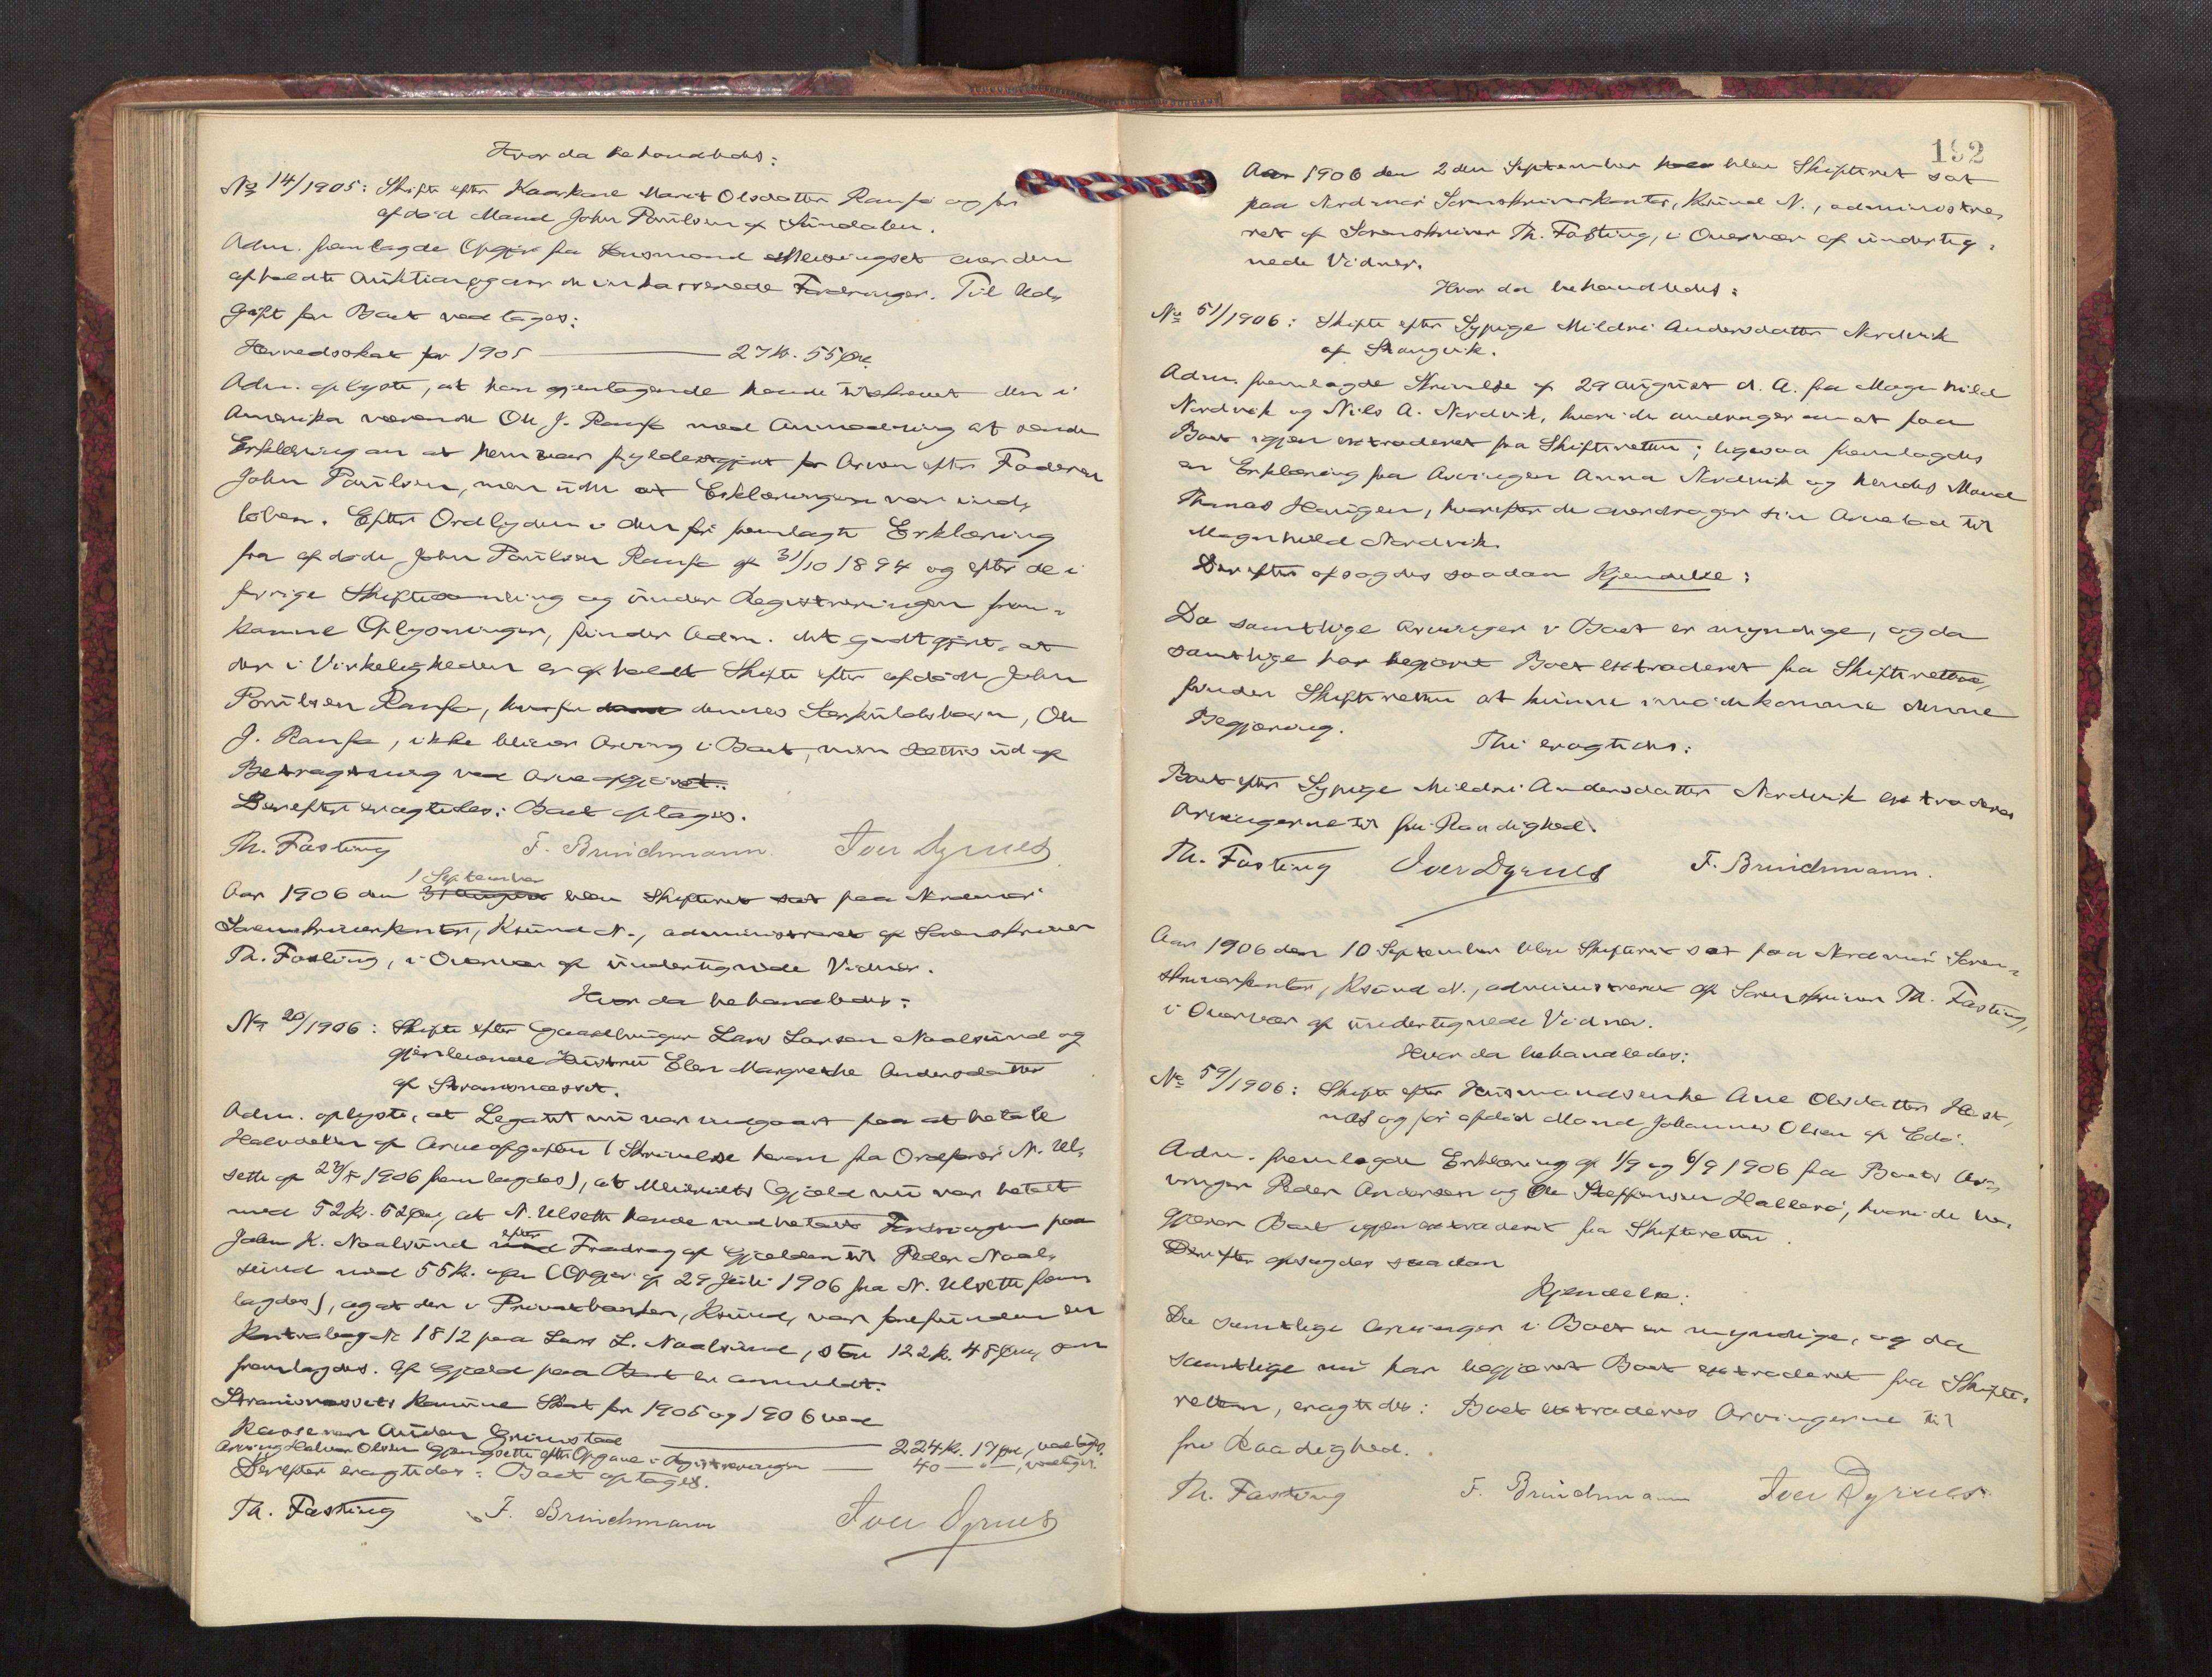 Hvor da behandledes:
No 14/1905: Skifte efter Kaarkone Marit Olsdatter Ranfa og før
afdød Mand John Poulsen af Sundalen.
Adm. fremlagde Opgjør fra Lensmand Mevingset over den
afholdte Auktion og over de inkasserede Fordringer. Til Ud-
gift for Boet vedtages:
Herredsskat for 1905 27 k. 55 Øre.
Adm. oplyste, at han gjentagende havde tilskrevet den i
Amerika værende Ole J. Ranfa med Anmodning at sende
Erklæring om at han var fyldestgjort for Arven efter Faderen
John Poulsen, men uden at Erklæringen var ind-
løben. Efter Ordlyden i den før fremlagte Erklæring
fra afdøde John Poulsen Ranfa af 31/10 1894 og efter de i
forrige Skiftesamling og under Registreringen frem-
komne Oplysninger, finder Adm. det godtgjort, at
der i Virkeligheden er afholdt Skifte efter afdøde John
Poulsen Ranfa, hvorfor dennes Særkuldsbarn, Ole
J. Ranfa, ikke bliver Arving i Boet, men sættes ud af
Betragtning ved Arveopgjøret.
Derefter eragtedes: Boet optages.
Th. Fasting F. Brinchmann Iver Dyrnes
1 September
Aar 1906 den 31 August blev Skifteret sat paa Nordmør
Sorenskriverkontor, Ksund N., administreret af Sorenskriver
Th. Fasting, i Overvær af undertegnede Vidner.
Hvor da behandledes:
No 20/1906: Skifte efter Gaardbruger Lars Larsen Naalsund og
gjenlevende Hustru Elen Margrethe Andersdatter
af Stramsnesset.
Adm. oplyste, at Legatet nu var indgaaet paa at betale
Halvdelen af Arveafgiften (Skrivelse herom fra Ordfører N. Ul-
seth af 1906 fremlagdes), at Gjæld nu var betalt
med 52 k. 52 Øre, at N. Ulseth havde indbetalt Fordringen paa
John K. Naalsund efter Fradrag af Gjælden til Peder Naal-
sund med 55 k. (Opgjør af 29 Juli 1906 fra N. Ulseth frem-
lagdes), og at der i Privatbanken, Ksund, var forefunden en
Kontrabog No 1812 paa Lars L. Naalsund, stor 122 k. 48 Øre, som
fremlagdes. Af Gjæld paa Boet er anmeldt:
Stramsnessets Komune Skat for 1905 og 1906 ved
Kasserer Anders Grimstad 224 k. 17 Øre, vedtages.
Arving Halvor Olsen Gjengseth efter Opgave i Registreringen 40 — " —, vedtages.
Derefter eragtedes: Boet optages.
Th. Fasting F. Brinchmann Iver Dyrnes
192
Aar 1906 den 2den September blev Skifteret sat
paa Nordmør Sorenskriverkontor, Ksund N., administre-
ret af Sorenskriver Th. Fasting, i Overvær af underteg-
nede Vidner.
Hvor da behandledes:
No 51/1906: Skifte efter Sypige Mildri Andersdatter Nordvik
af Stangvik.
Adm. fremlagde Skrivelse af 29 August d. A. fra Magnhild
Nordvik og Nils A. Nordvik, hvori de andrager om at faa
Boet igjen extraderet fra Skifteretten; ligesaa fremlagdes
en Erklæring fra Arvingen Anna Nordvik og hendes Mand
Thomas Haugen, hvorefter de overdrager sin Arvelod til
Magnhild Nordvik.
Derefter afsagdes saadan Kjendelse:
Da samtlige Arvinger i Boet er myndige, og da
samtlige har begjæret Boet extraderet fra Skifteretten,
finder Skifteretten at kunne imødekomme denne
Begjæring.
Thi eragtedes:
Boet efter Sypige Mildri Andersdatter Nordvik extraderes
Arvingerne til fri Raadighed.
Th. Fasting Iver Dyrnes F. Brinchmann.
Aar 1906 den 10 September blev Skifteret sat paa Nordmør Soren-
skriverkontor, Ksund N., administreret af Sorenskriver Th. Fasting,
i Overvær af undertegnede Vidner.
Hvor da behandledes:
No 59/1906: Skifte efter Husmandsenke Ane Olsdatter Hest-
nes og før afdød Mand Johannes Olsen af Edø.
Adm. fremlagde Erklæring af 1/9 og 6/9 1906 fra Boets Arv-
inger Peder Andersen og Ole Steffensen Hallerø, hvori de be-
gjærer Boet igjen extraderet fra Skifteretten.
Derefter afsagdes saadan
Kjendelse:
Da samtlige Arvinger i Boet er myndige, og da
samtlige nu har begjæret Boet extraderet fra Skifte-
retten, eragtedes: Boet extraderes Arvingerne til
fri Raadighed.
Th. Fasting F. Brinchmann Iver Dyrnes